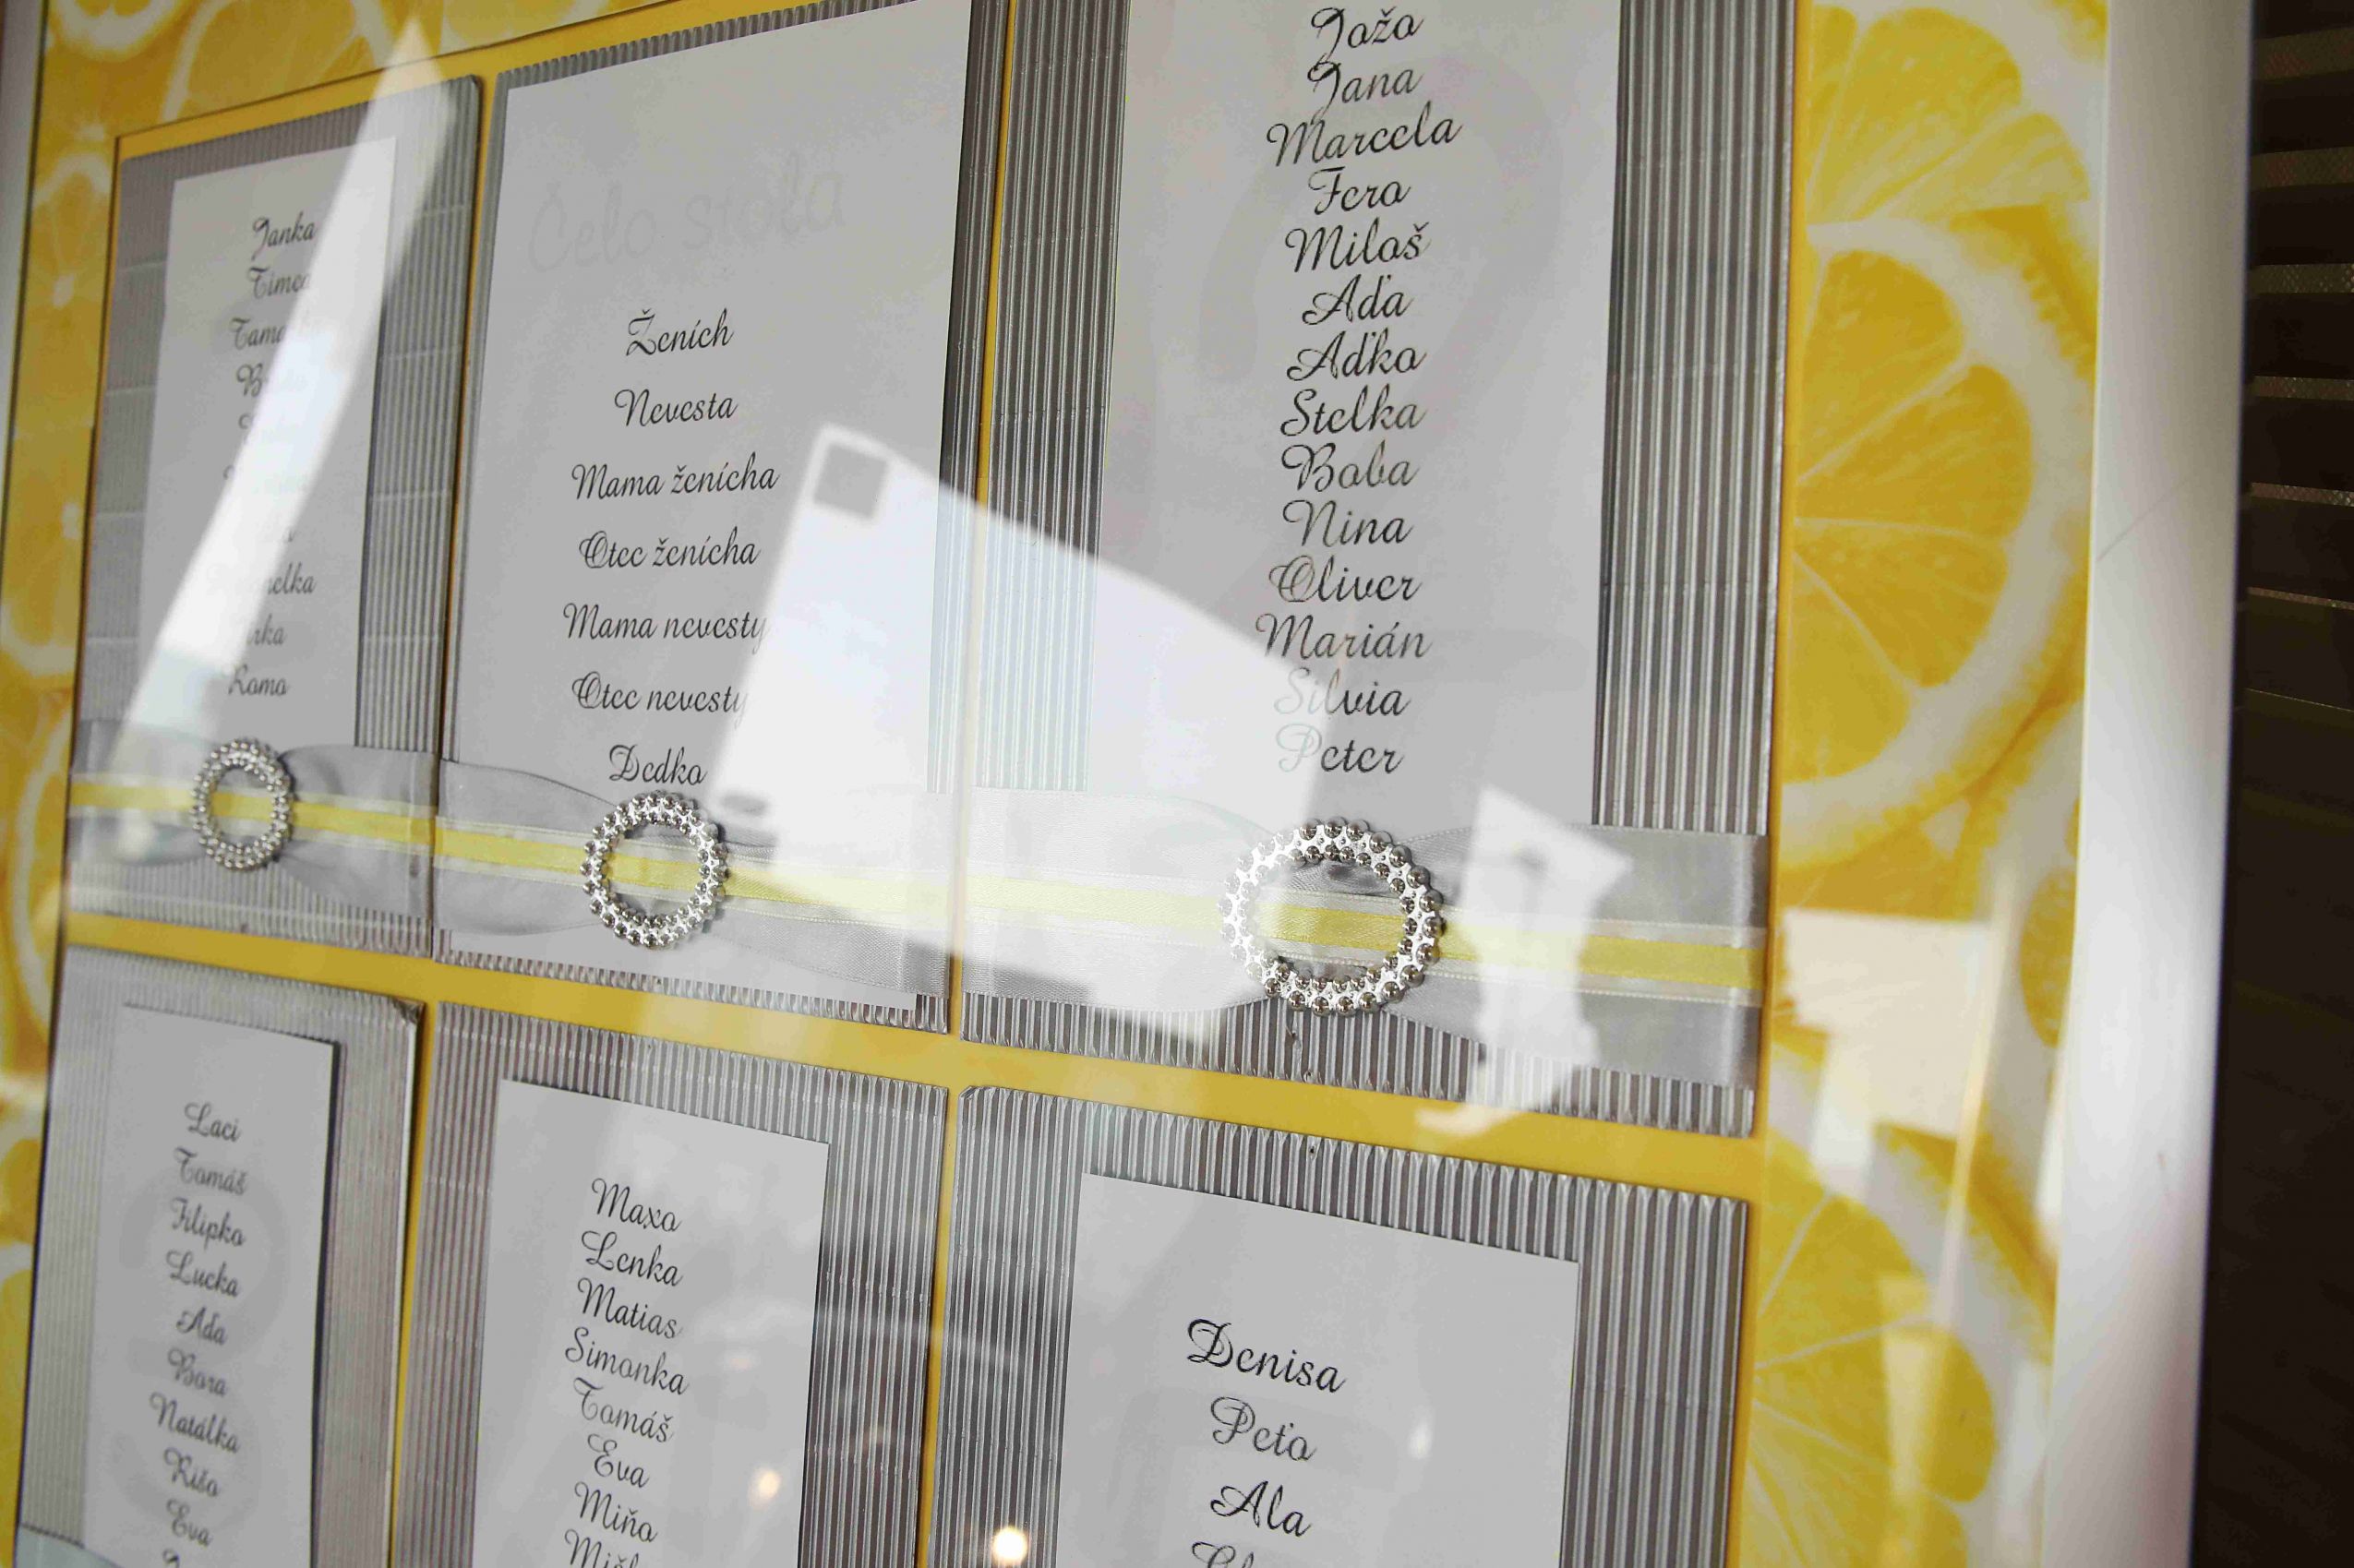 Janka
Timea
Romo
Čelo stola
Ženích
Nevesta
Mama ženícha
Otec ženícha
Mama nevesty
Otec nevesty
Dedko
Jožo
Jana
Marcela
Fero
Miloš
Aďa
Aďko
Stelka
Boba
Nina
Oliver
Marián
Silvia
Peter
Laci
Tomáš
Filipko
Lucka
Aďa
Bora
Natálka
Rišo
Eva
Maxo
Lenka
Matias
Simonka
Tomáš
Eva
Miňo
Denisa
Peťo
Ala